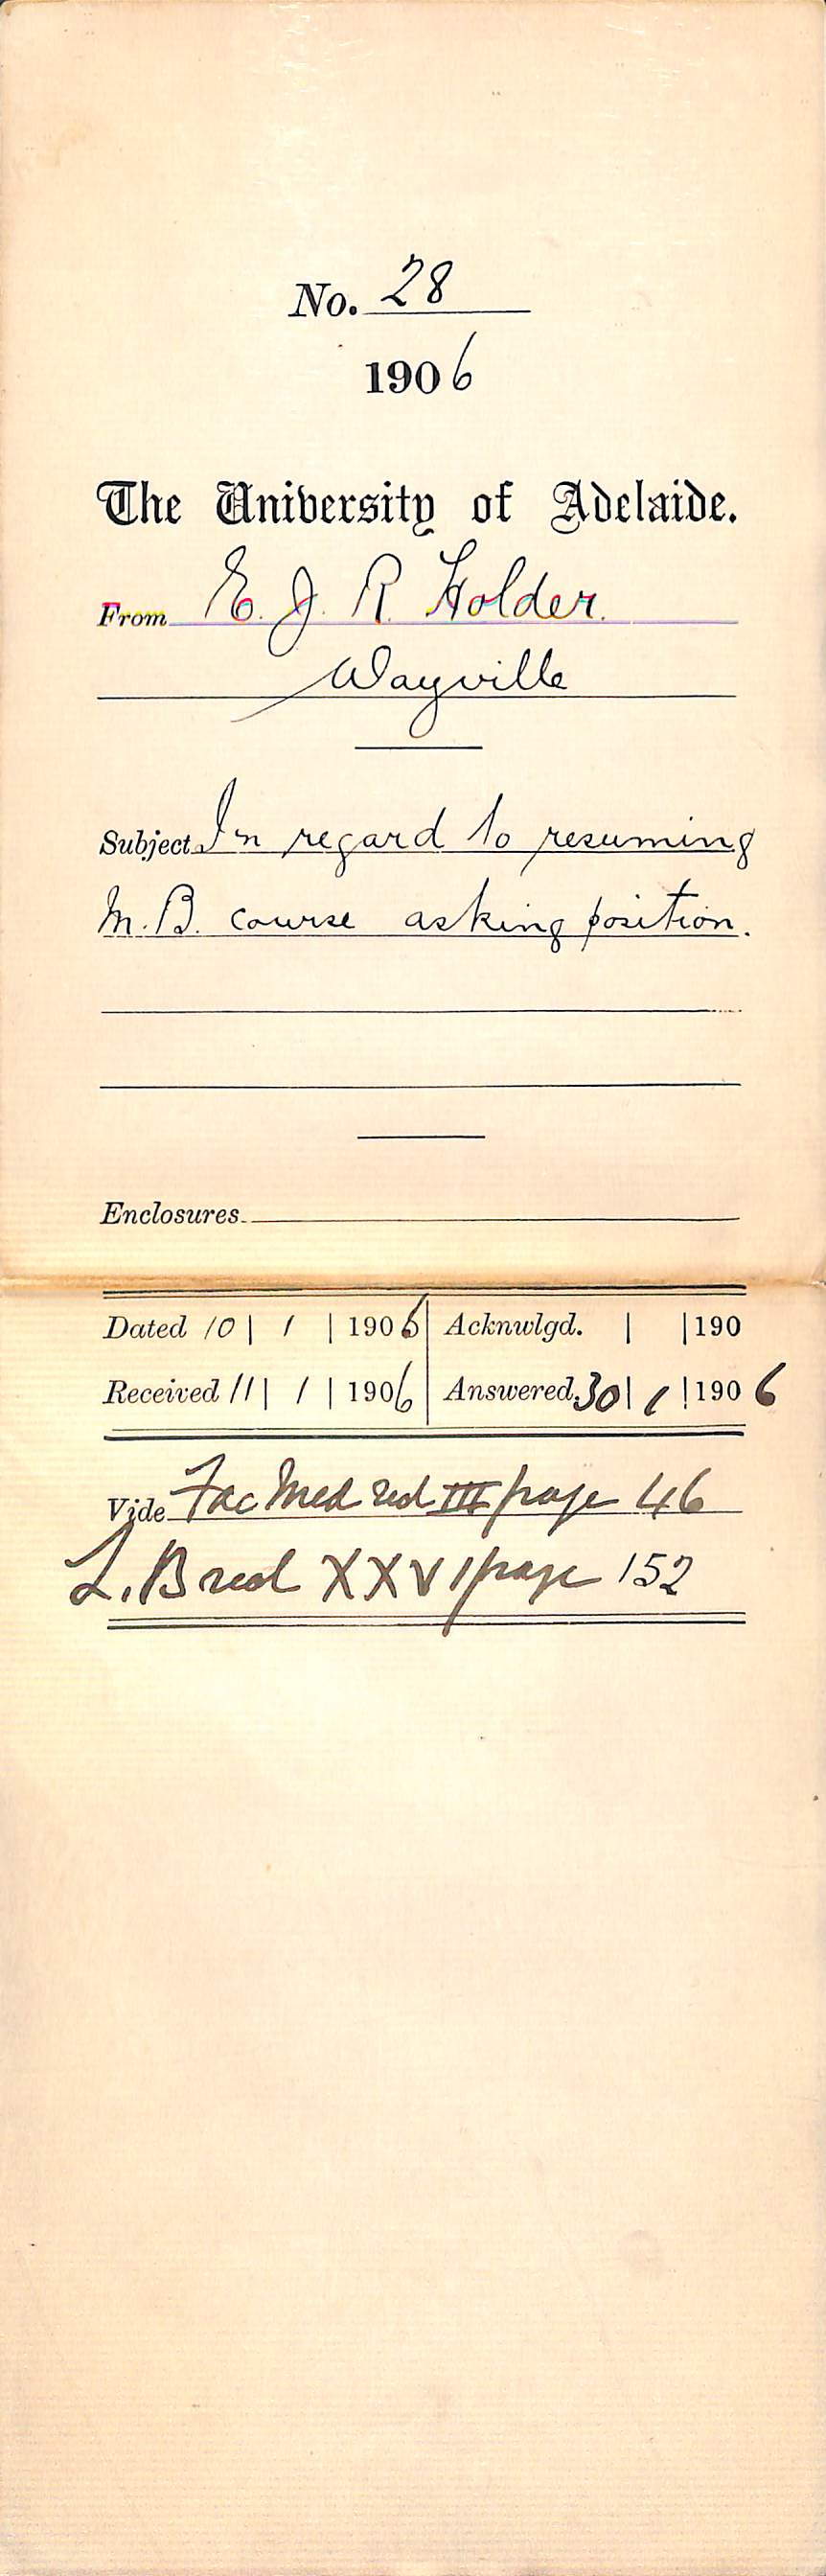 No. 28
1906
The University of Adelaide.
From E. J. R. Holder.
Wayville
Subject In regard to resuming
M.B. course asking position.
Enclosures
Dated 10 | 1 | 1906 Acknwlgd. | | 190
Received 11 | 1 | 1906 Answered. 30 | 1 | 1906
Vide Fac Med red III page 46
L. B red XXVI page 152